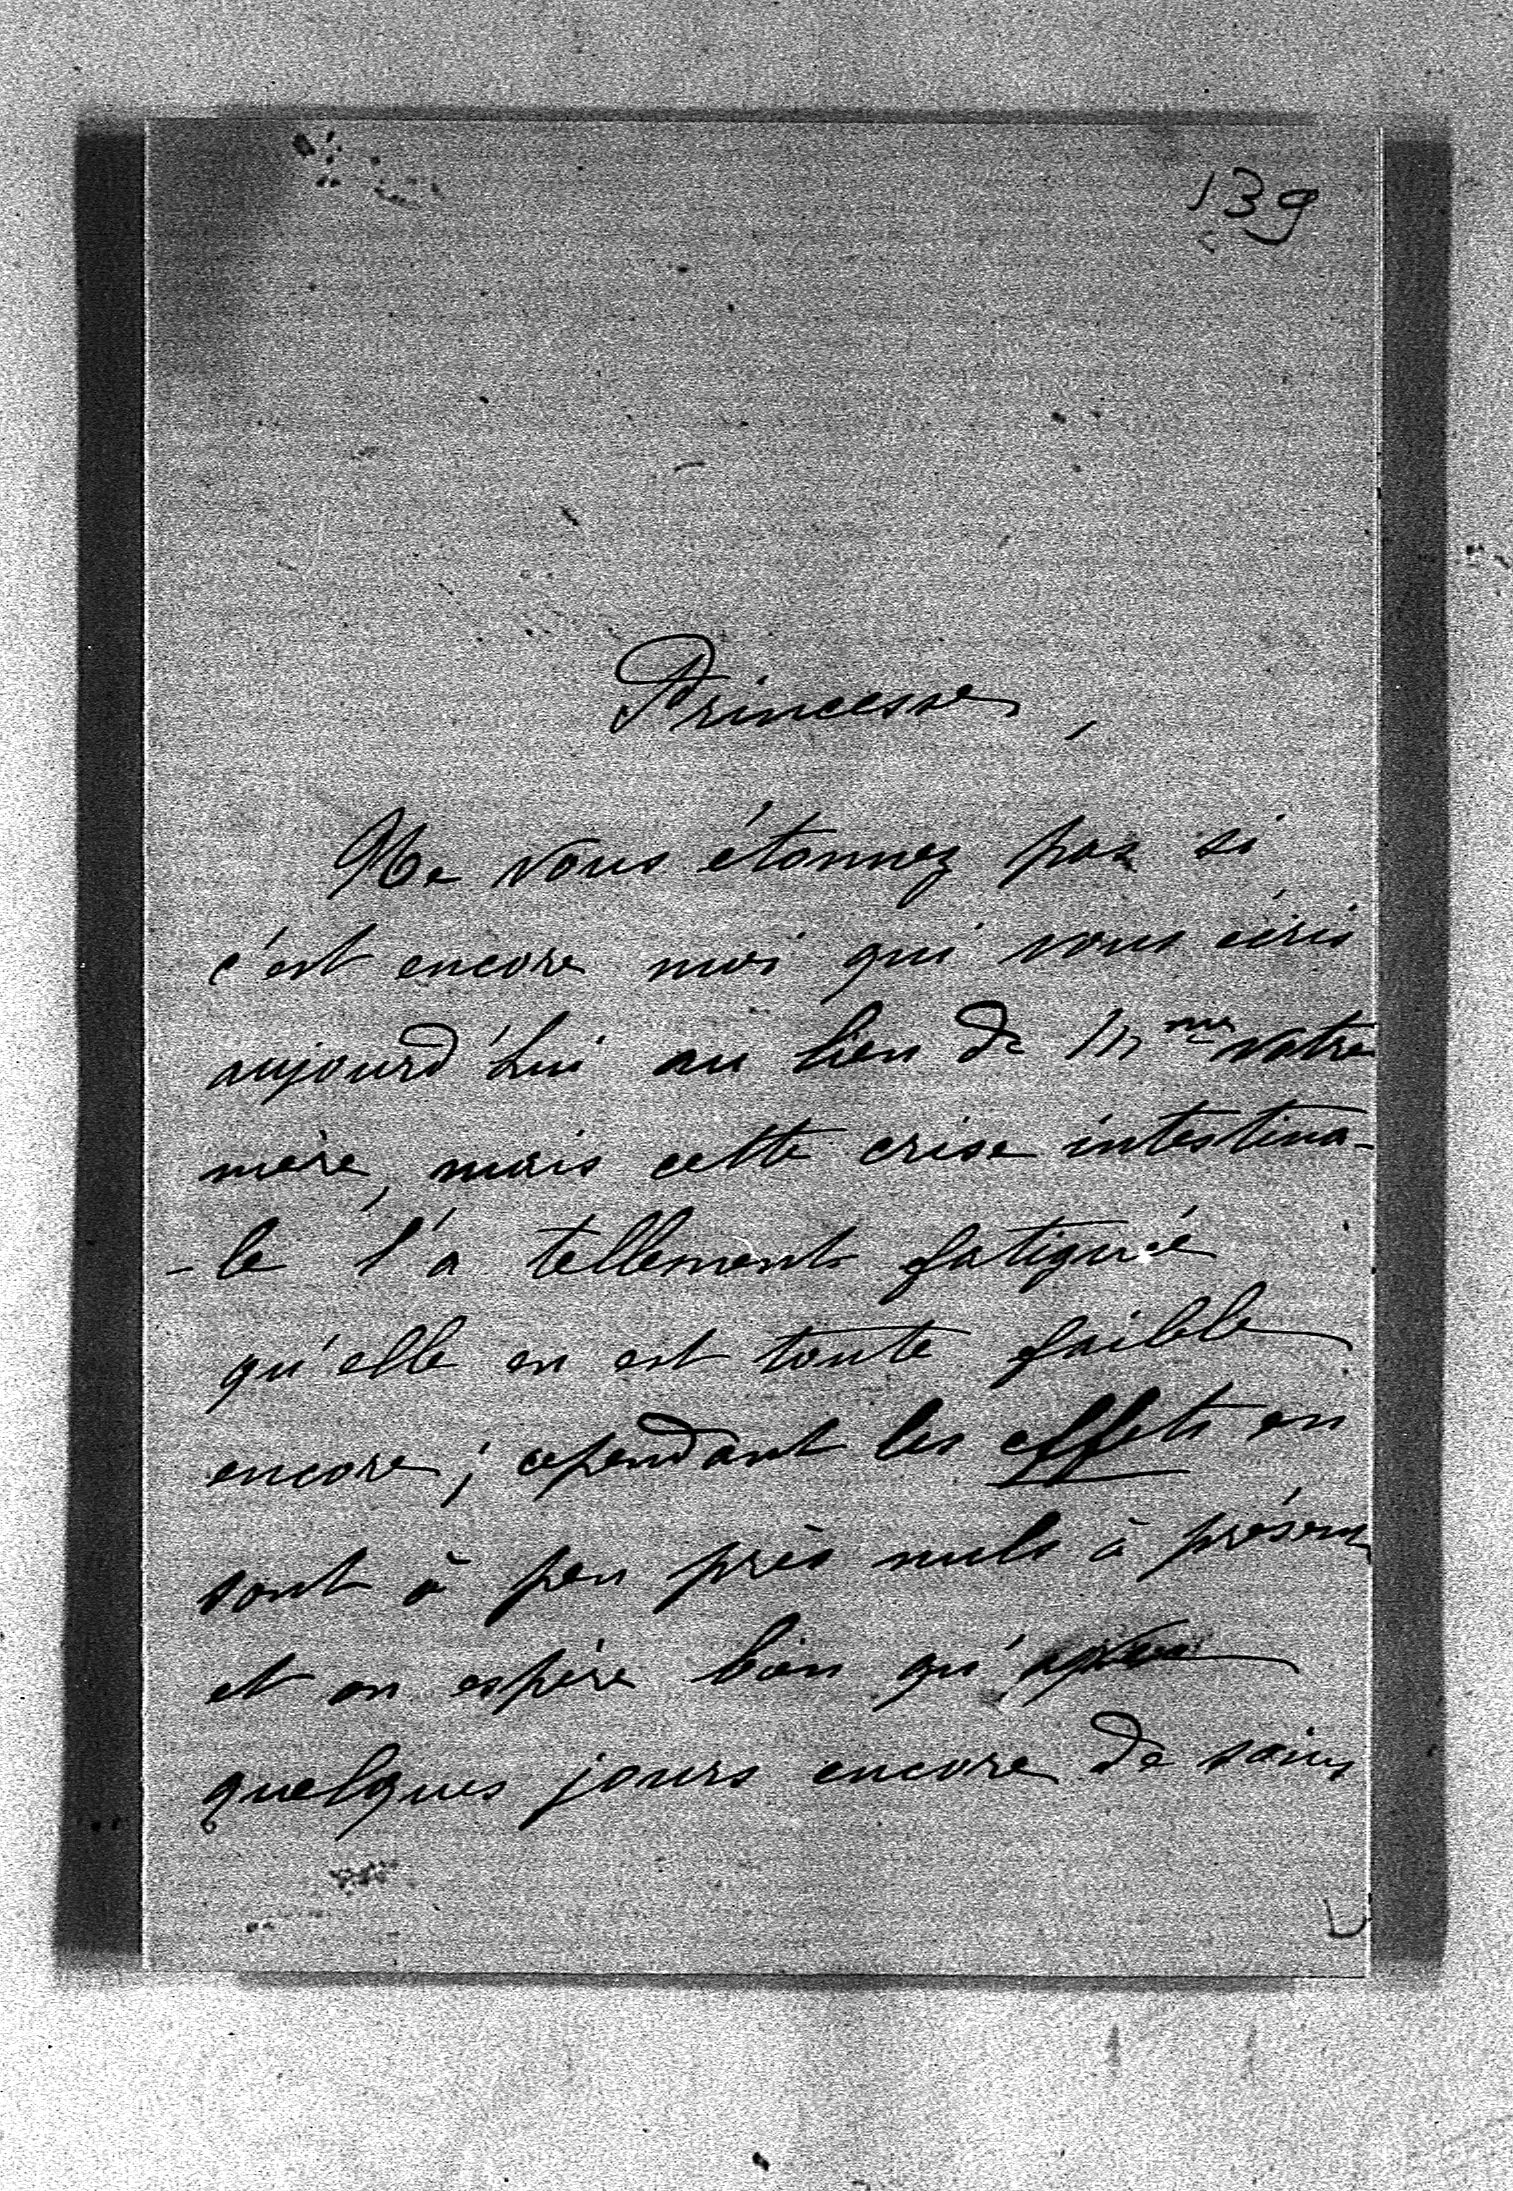 139
Princesse,
Ne vous étonnez pas si
c'est encore moi qui vous écris
aujourd'hui au lieu de Mme votre
mère, mais cette crise intestina-
-le l'a tellement fatiguée
qu'elle en est toute faible
encore; cependant les effets en
sont à peu près nuls à présent
et on espère bien qu'après
quelques jours encore de soins